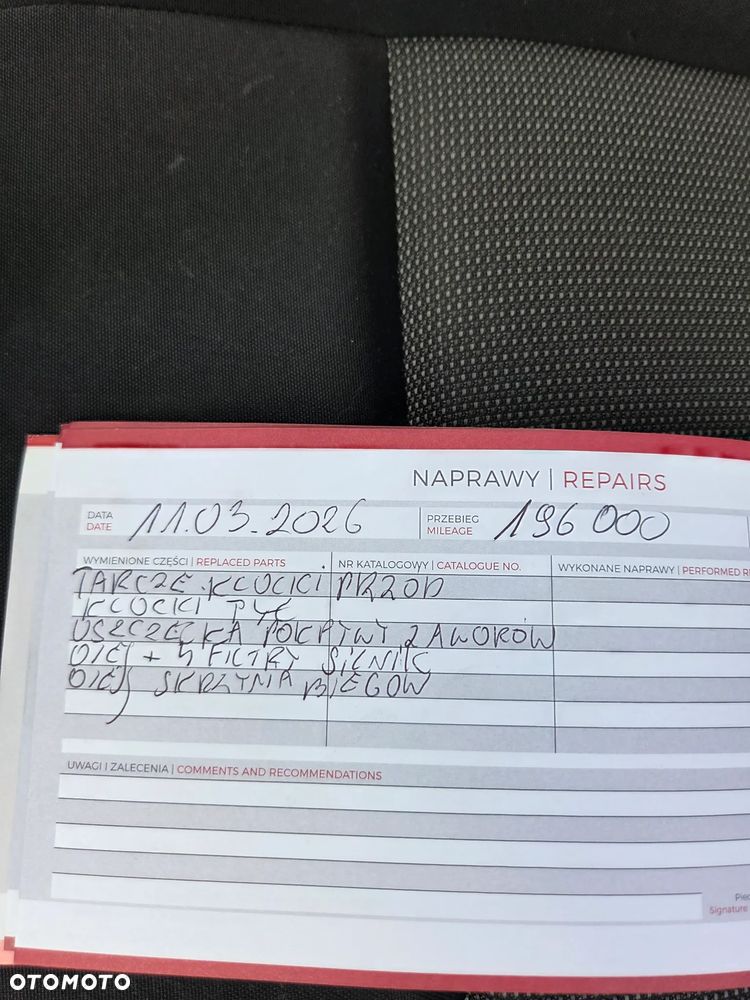 NAPRAWY | REPAIRS
DATA 11.03.2026 PRZEBIEG 196 000
DATE MILEAGE
WYMIENIONE CZĘŚCI | REPLACED PARTS NR KATALOGOWY | CATALOGUE NO. WYKONANE NAPRAWY | PERFORMED RE
TARCZE KLOCKI PRZOD
KLOCKI TYŁ
USZCZELKA POKRYWY ZAWORÓW
OLEJ + 4 FILTRY SILNIK
OLEJ SKRZYNIA BIEGÓW
UWAGI I ZALECENIA | COMMENTS AND RECOMMENDATIONS
Piec
Signature
OTOMOTO